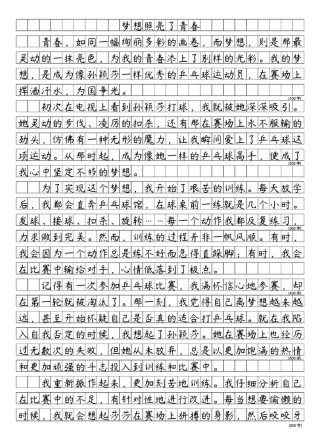 梦想照亮了青春
青春，如同一幅绚丽多彩的画卷，而梦想，则是那最
灵动的一抹亮色，为我的青春添上了别样的光彩。我的梦
想，是成为像孙颖莎一样优秀的乒乓球运动员，在赛场上
挥洒汗水，为国争光。
初次在电视上看到孙颖莎打球，我就被她深深吸引。
她灵动的步伐、凌厉的扣杀，还有那在赛场上永不服输的
劲头，仿佛有一种无形的魔力，让我瞬间爱上了乒乓球这
项运动。从那时起，成为像她一样的乒乓球高手，便成了
我心中坚定不移的梦想。
为了实现这个梦想，我开始了艰苦的训练。每天放学
后，我都会直奔乒乓球馆，在球桌前一练就是几个小时。
发球、接球、扣杀、旋转……每一个动作我都反复练习，
力求做到完美。然而，训练的过程并非一帆风顺。有时，
我会因为一个动作总是练不好而急得直跺脚；有时，我会
在比赛中输给对手，心情低落到了极点。
记得有一次参加乒乓球比赛，我满怀信心地参赛，却
在第一轮就被淘汰了。那一刻，我觉得自己离梦想越来越
远，甚至开始怀疑自己是否真的适合打乒乓球。就在我陷
入自我否定的时候，我想起了孙颖莎。她在赛场上也经历
过无数次的失败，但她从未放弃，总是以更加饱满的热情
和更加顽强的斗志投入到训练和比赛中。
我重新振作起来，更加刻苦地训练。我仔细分析自己
在比赛中的不足，有针对性地进行改进。每当想要偷懒的
时候，我就会想起孙颖莎在赛场上拼搏的身影，然后咬咬牙